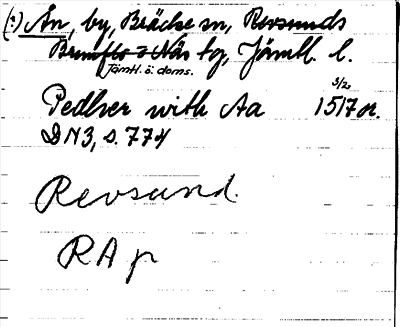 (?) Ån, by, Bräcke sn, Revsunds
Brunflo o Näs tg, Jämtl. l.
Jämtl. ö. doms.
Pedher with Aa 3/2 1517 or.
DN3, s. 774
Revsund.
RAp